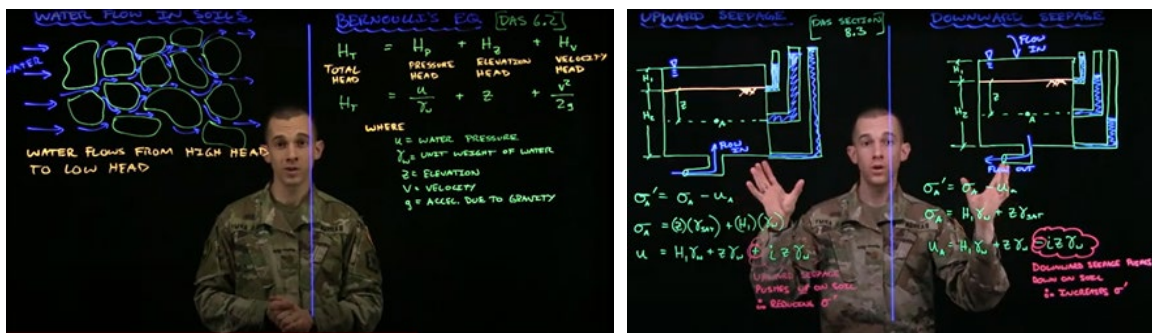 WATER FLOW IN SOILS
WATER
WATER FLOWS FROM HIGH HEAD
TO LOW HEAD
BERNOULLI'S EQ [DAS 6.2]
H_T = H_P + H_Z + H_V
TOTAL HEAD PRESSURE HEAD ELEVATION HEAD VELOCITY HEAD
H_T = u/γ_w + z + v²/2g
WHERE
u = WATER PRESSURE
γ_w = UNIT WEIGHT OF WATER
Z = ELEVATION
V = VELOCITY
g = ACCEL. DUE TO GRAVITY
UPWARD SEEPAGE
[DAS SECTION
8.3]
H₁
H₂
Z
A
FLOW
IN
σ_A' = σ_A - u_A
σ_A = (Z)(γ_SAT) + (H₁)(γ_w)
u = H₁γ_w + Zγ_w + i z γ_w
UPWARD SEEPAGE
PUSHES UP ON SOIL
∴ REDUCING σ'
DOWNWARD SEEPAGE
FLOW
IN
H₁
H₂
Z
A
FLOW OUT
σ_A' = σ_A - u_A
σ_A = H₁γ_w + Zγ_SAT
u_A = H₁γ_w + Zγ_w - i z γ_w
DOWNWARD SEEPAGE PUSHES
DOWN ON SOIL
∴ INCREASES σ'